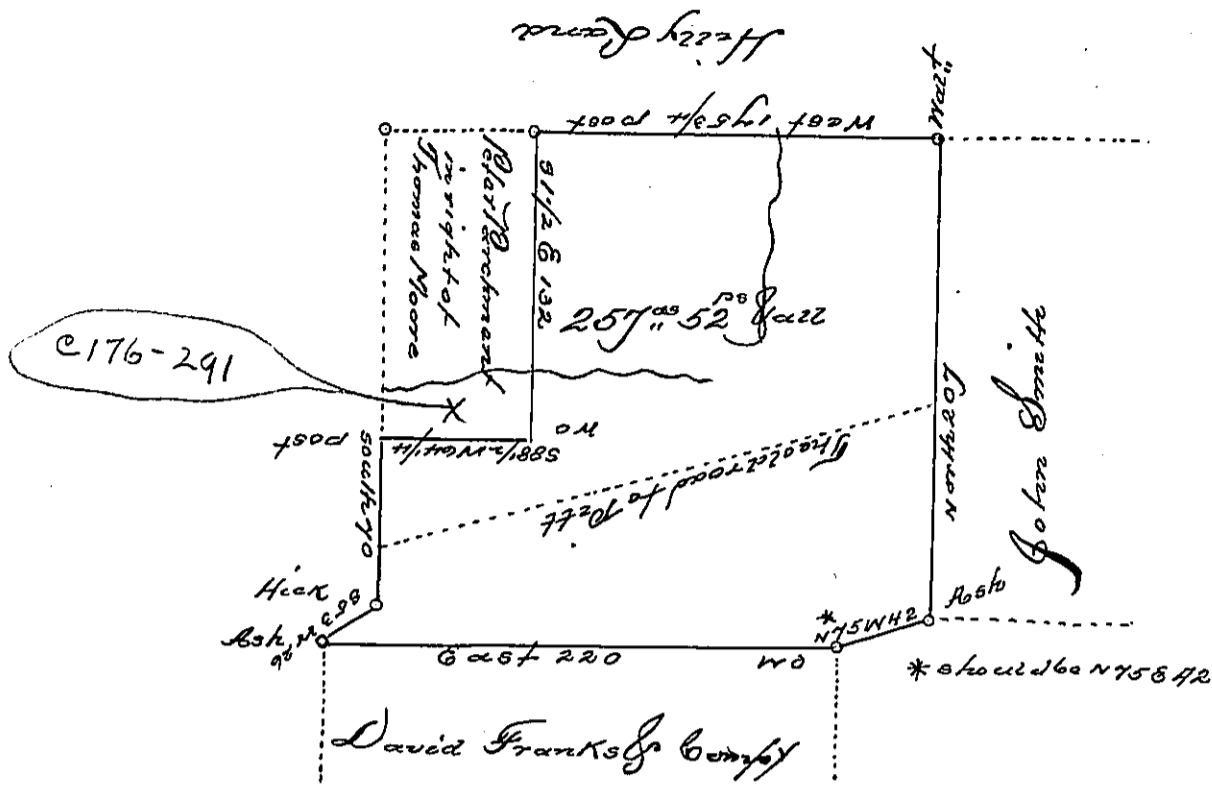 Hilly Land
West 175 3/4 post
Walt
Peter Parchment
in right of
Thomas Moore
S 1 1/2 E 132
257 as 52 ps & all
C176-291
S88 1/2 W 64 1/4 post
WO
South 70
The old road to Pitt
North 207
John Smith
Hick
S53 W 26
Ash
East 220
WO
*
N75W42
Ash
* should be N75E42
David Franks & Compy